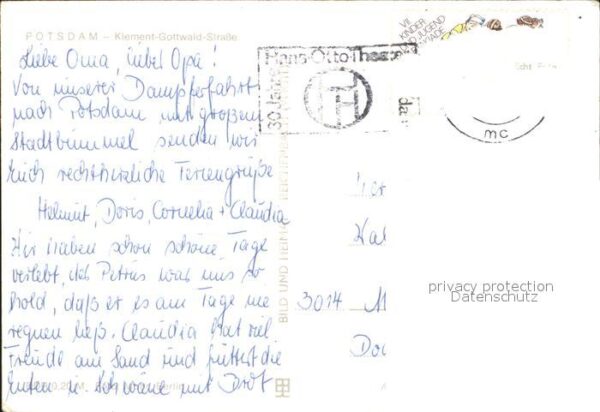 POTSDAM – Klement-Gottwald-Straße
Liebe Oma, lieber Opa!
Von unserer Dampferfahrt
nach Potsdam mit großem
Stadtbummel senden wir
Euch recht herzliche Feriengrüße
Helmut, Doris, Cornelia + Claudia
Wir haben schon schöne Tage
verlebt, da Petrus war uns so
hold, daß er es am Tage nie
regnen ließ. Claudia hat viel
Freude am Sand und füttert die
Enten u. Schwäne mit Brot
VII.
KINDER
UND JUGEND
Hans-Otto-Thea
30 Jahre
mc
BILD UND HEIMAT REICHENBACH
3014 M
Do
privacy protection
Datenschutz